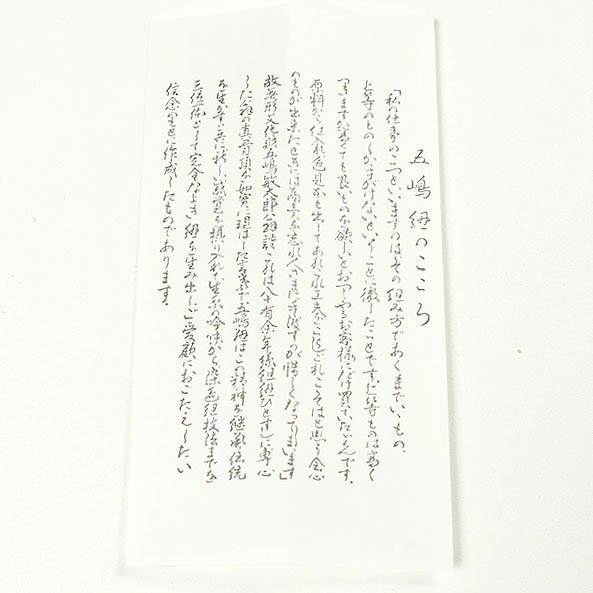 五嶋紐のこころ
「私の仕事のこつといいますのは、その組み方であくまでいいもの、
上等のものしかまげないといふことに徹したことです。上等ものは高く
つきますが高くても良いものを欲しいとおっしゃるお客様にだけ買っていたゞくんです。
原料から仕入れ色見本も出してあれこれ工夫してこれこそはと思う会心
のものが出来たときには商売を忘れ今まで手渡すのが惜しくなってしまいます」
故無形文化財五嶋敏太郎翁談 これは八十有余年絲組紐ひとすじに専心
した翁の真骨頂を如実に現はした言葉で五嶋紐はこの精神を継承し伝統
を生かす共に新しい感覚を摂り入れ、生糸の吟味から染色組技法までを
三位一体として完全なよき紐を生み出しご愛顧におこたえしたい
信念のもとに作成したものであります。